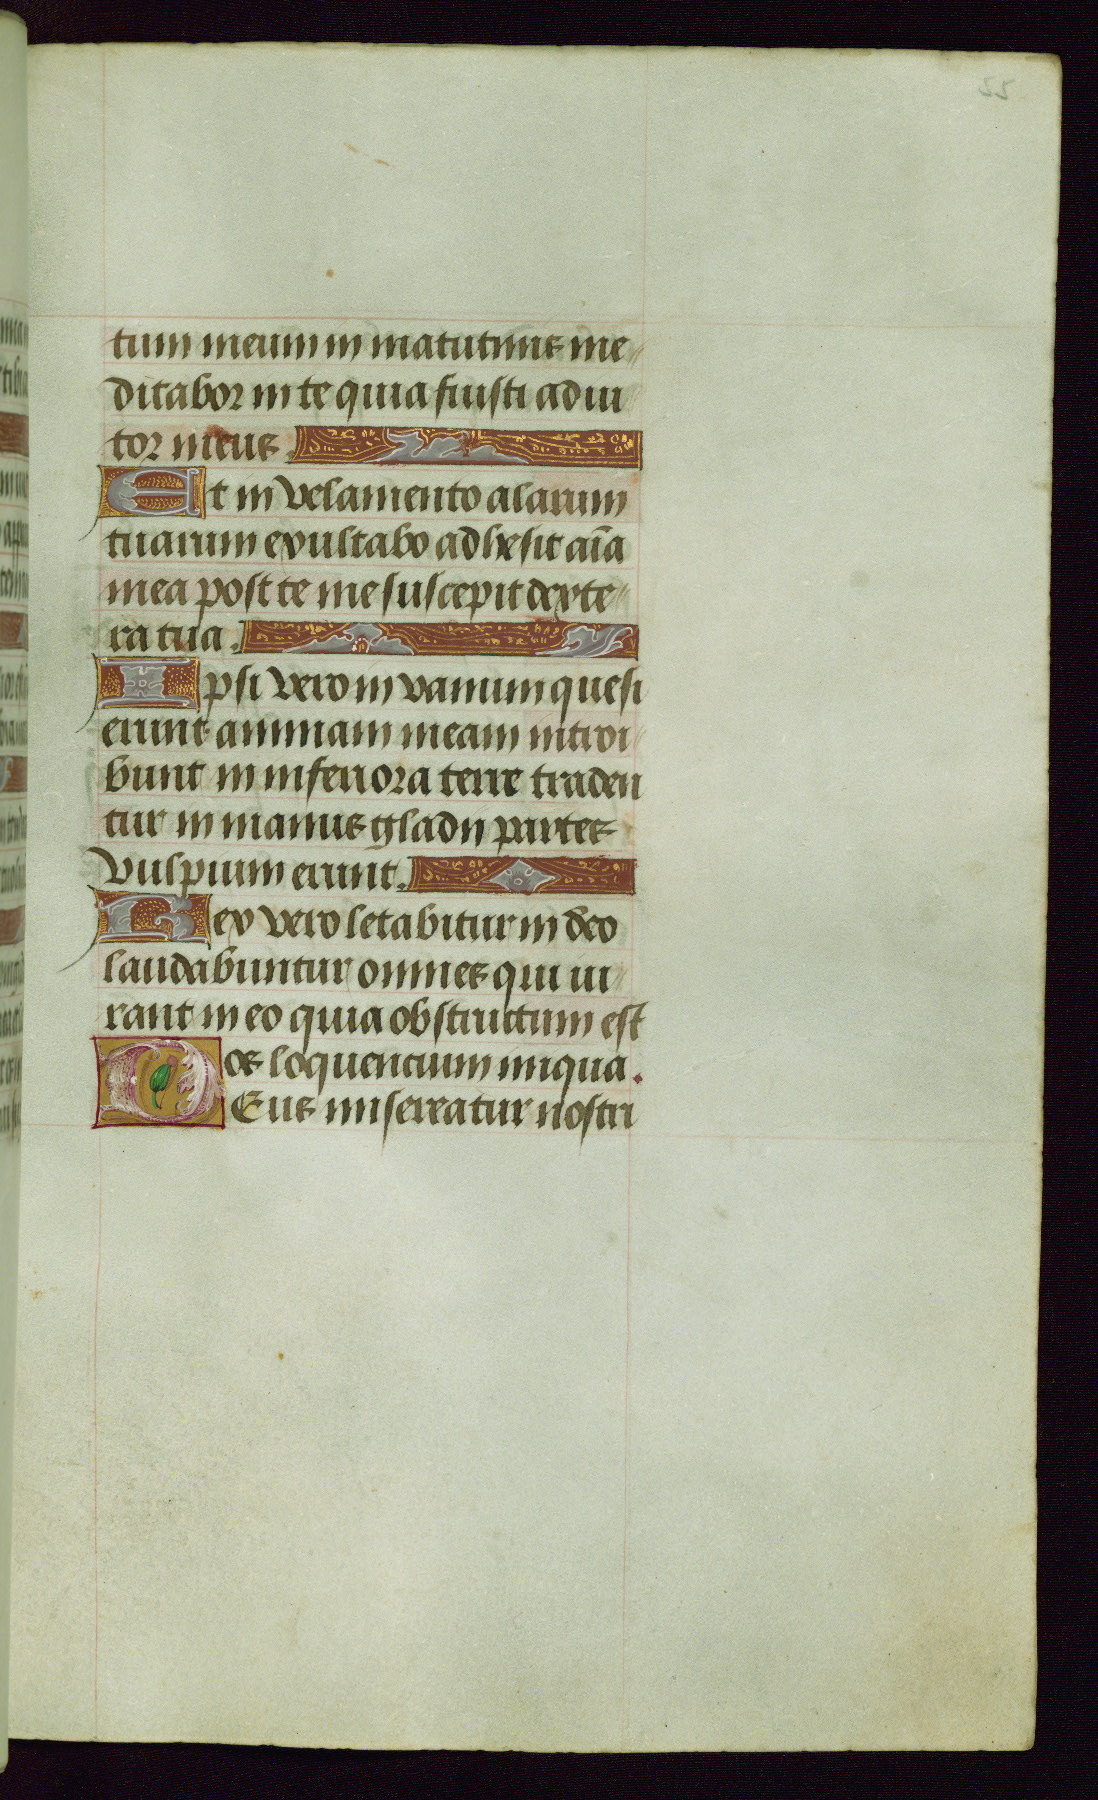 22
tum meum in matutinis me
ditabor in te quia fuisti adiu
tor meus.
Et in velamento alarum
tuarum exultabo adhesit aīa
mea post te me suscepit dexte
ra tua.
Ipsi vero in vanum quesi
erunt animam meam introi
bunt in inferiora terre traden
tur in manus gladii partes
vulpium erunt.
Rex vero letabitur in deo
laudabuntur omnes qui iu
rant in eo quia obstructum est
os loquencium iniqua.
DEus misereatur nostri